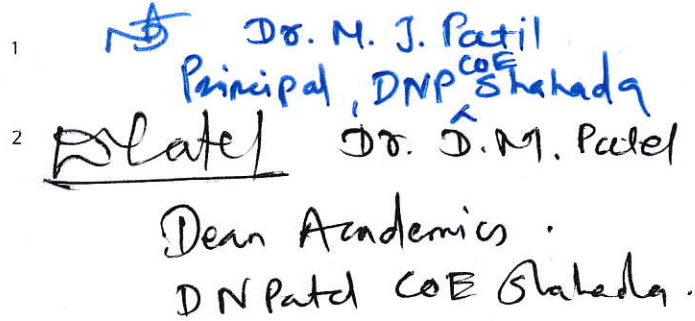 1 Dr. M. J. Patil
Principal, DNP COE Shahada
2 DPatel Dr. D. M. Patel
Dean Academics.
D N Patel COE Shahada.